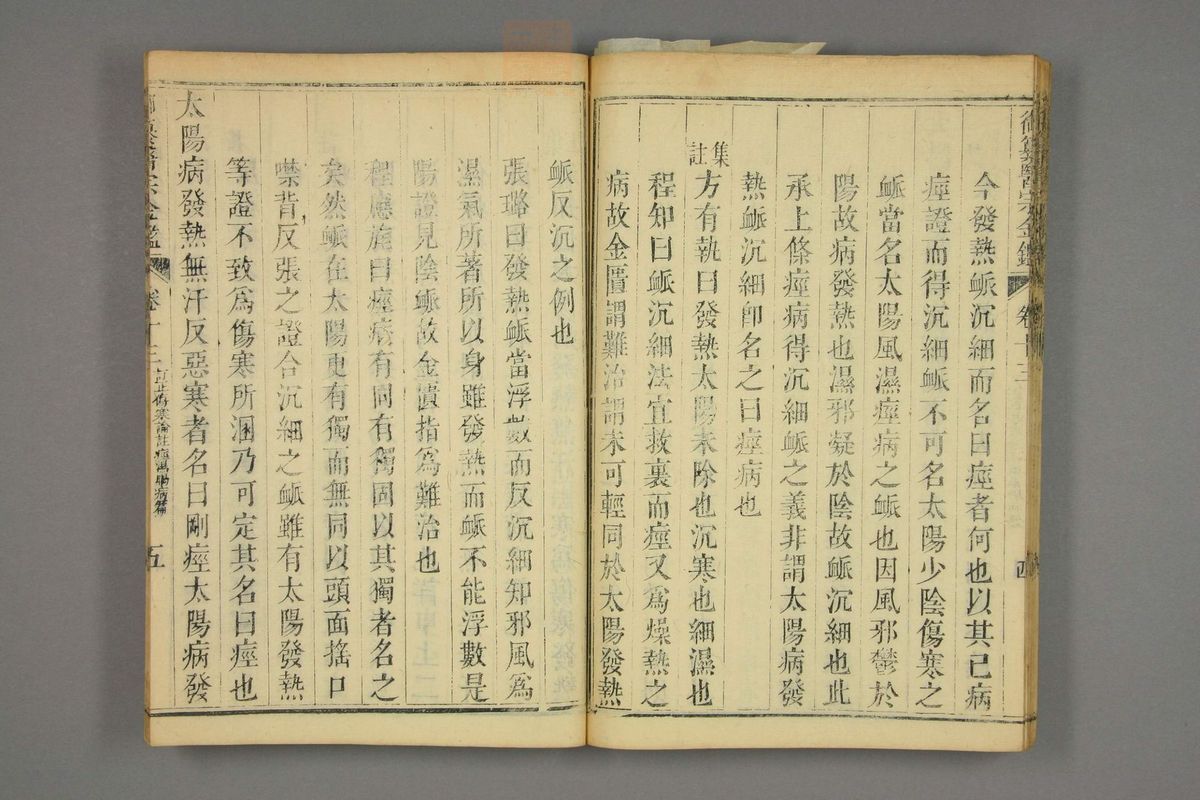 今發熱䘑沉細而名曰痙者何也以其已病
痙證而得沉細䘑不可名太陽少陰傷寒之
䘑當名太陽風濕痙病之䘑也因風邪鬱於
陽故病發熱也濕邪凝於陰故䘑沉細也此
承上條痙病得沉細䘑之義非謂太陽病發
熱䘑沉細卽名之曰痙病也
集註
方有執曰發熱太陽未除也沉寒也細濕也
程知曰䘑沉細法宜救裏而痙又爲燥熱之
病故金匱謂難治謂未可輕同於太陽發熱
御纂醫宗金鑑
卷十三
四
䘑反沉之例也
張璐曰發熱䘑當浮數而反沉細知邪風爲
濕氣所著所以身雖發熱而䘑不能浮數是
陽證見陰䘑故金匱指爲難治也
程應旄曰痙病有同有獨固以其獨者名之
矣然䘑在太陽更有獨而無同以頭面搖口
噤背反張之證合沉細之䘑雖有太陽發熱
等證不致爲傷寒所溷乃可定其名曰痙也
太陽病發熱無汗反惡寒者名曰剛痙太陽病發
御纂醫宗金鑑
卷十三
訂正傷寒論註痙濕暍病篇
五